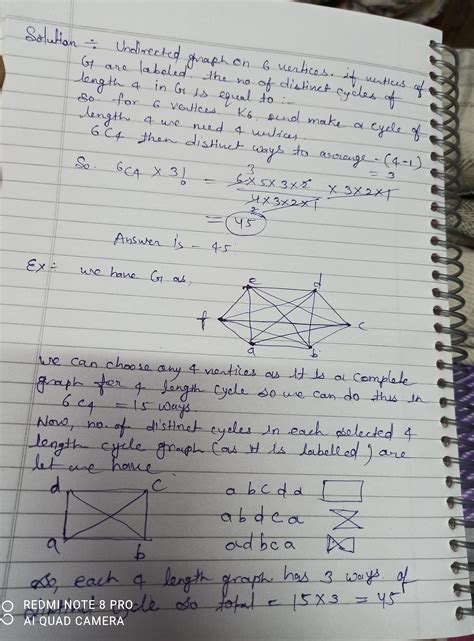 Solution ÷ Undirected graph on 6 vertices. if vertices of
G are labeled the no of distinct cycles of
length 4 in G is equal to :-
So for 6 vertices K6, and make a cycle of
length 4 we need 4 vertices
6C4 then distinct ways to arrange - (4-1)
= 3
So 6C4 × 3! = 6×5×3×2 × 3×2×1
4×3×2×1
= 45
Answer is - 45
Ex ÷ we have G as,
e d
f c
a b
we can choose any 4 vertices as it is a complete
graph for 4 length cycle so we can do this in
6C4 = 15 ways.
Now, no. of distinct cycles in each selected 4
length cycle graph (as it is labelled) are
let we have
d c a b c d a
a b d c a
a b a d b c a
So, each 4 length graph has 3 ways of
cycle so total = 15×3 = 45
REDMI NOTE 8 PRO
AI QUAD CAMERA